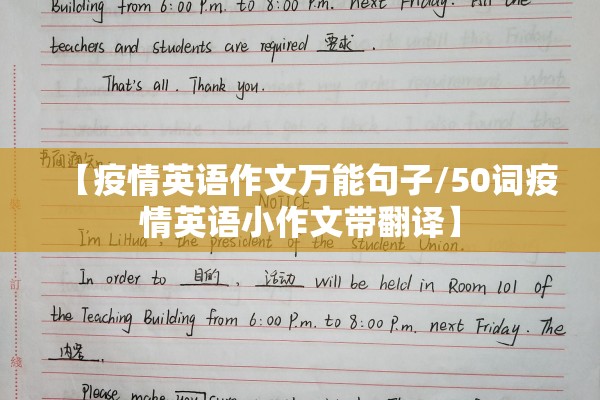 Building from 6:00 P.m. to 8:00 P.m. next Friday. All the
teachers and students are required 要求.
That's all. Thank you.
书面通知
【疫情英语作文万能句子/50词疫
情英语小作文带翻译】
NOTICE
I'm LiHua, the president of the Student Union.
In order to 目的, 活动 will be held in Room 101 of
the Teaching Building from 6:00 P.m. to 8:00 P.m. next Friday. The
内容.
Please make you
订
线